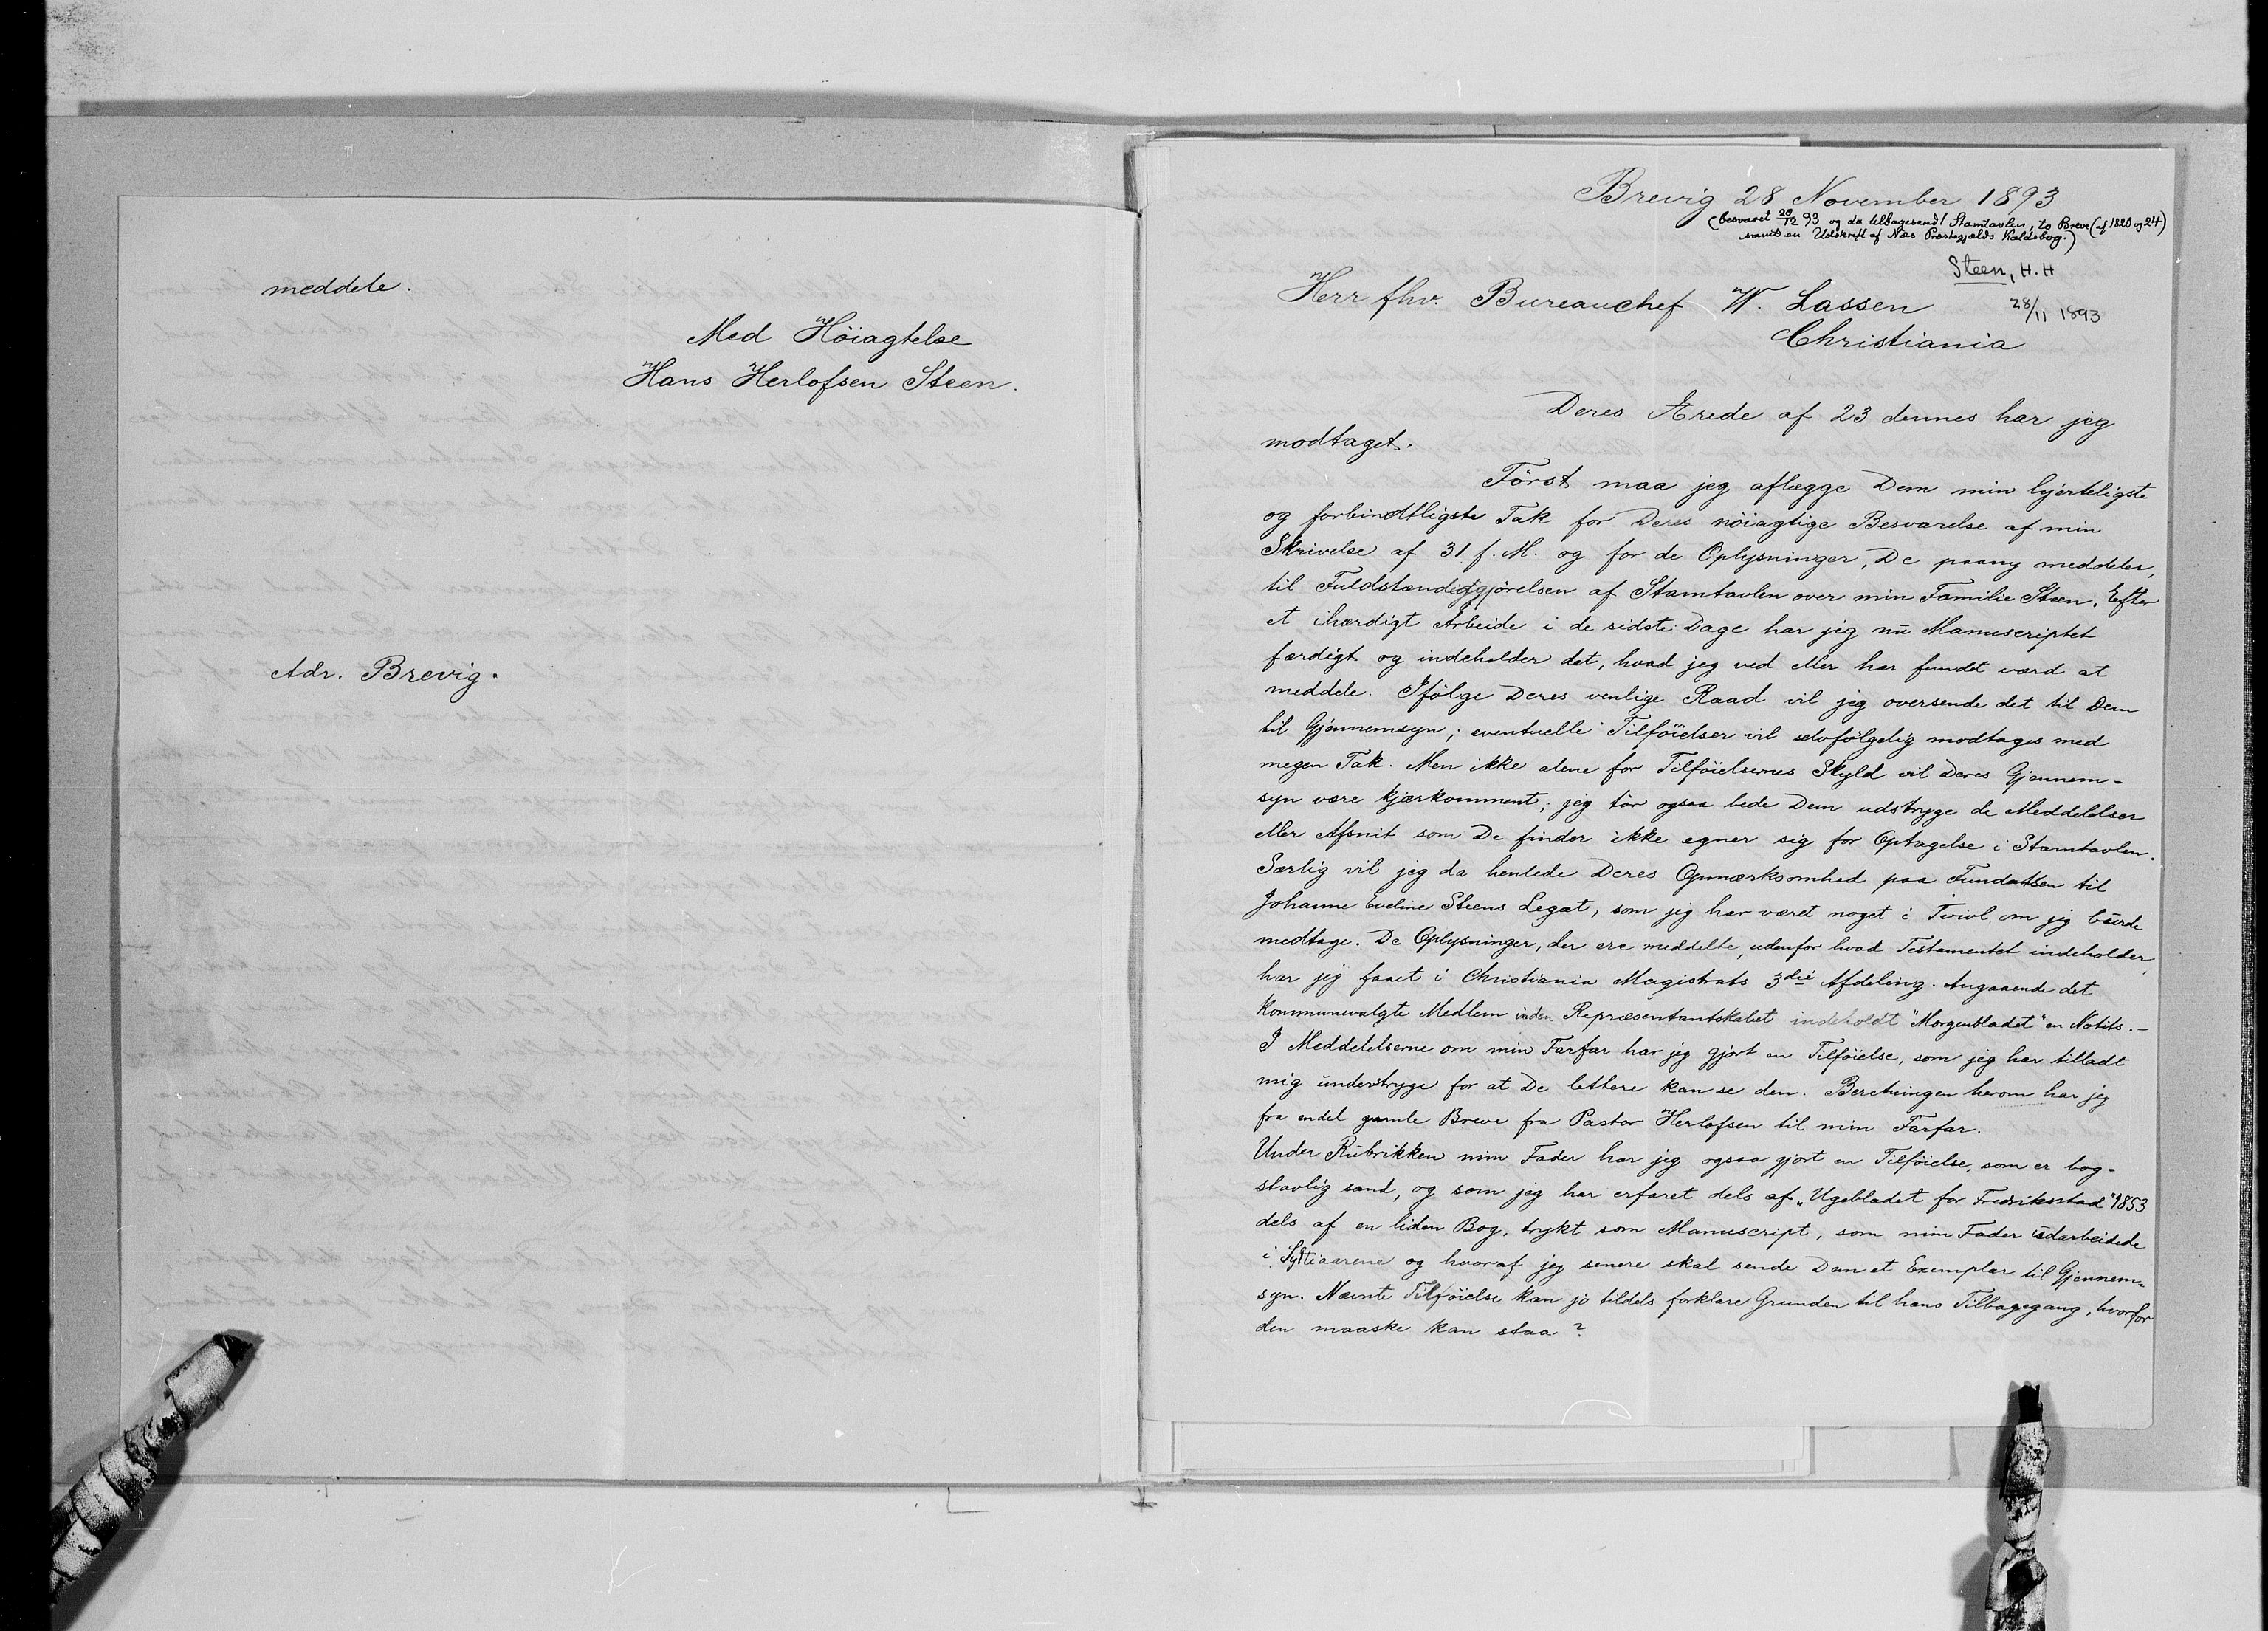 meddele.
Med Höiagtelse
Hans Herlofsen Steen.
Adr. Brevig.
Brevig 28 November 1893
(besvaret 20/12 93 og da tilbagesendt Stamtavlen, to Breve (af 1820 og 24)
samt en Udskrift af Næs Præstegjælds Kaldsbog.)
Steen, H. H
28/11 1893
Herr fhv. Bureauchef W. Lassen
Christiania
Deres Ærede af 23 dennes har jeg
modtaget.
Först maa jeg aflægge Dem min hjerteligste
og forbindtligste Tak for Deres nöiagtige Besvarelse af min
Skrivelse af 31 f. M. og for de Oplysninger, De paany meddeler,
til Fuldstændiggjörelsen af Stamtavlen over min Familie Steen. Efter
et ihærdigt Arbeide i de sidste Dage har jeg nu Manuscriptet
færdigt og indeholder det, hvad jeg ved eller har fundet værd at
meddele. Ifölge Deres venlige Raad vil jeg oversende det til Dem
til Gjennemsyn; eventuelle Tilföielser vil selvfölgelig modtages med
megen Tak. Men ikke alene for Tilföielsernes Skyld vil Deres Gjennem-
syn være kjærkomment; jeg tör ogsaa bede Dem udstryge de Meddelelser
eller Afsnit som De finder ikke egner sig for Optagelse i Stamtavlen.
Særlig vil jeg da henlede Deres Opmærksomhed paa Fundatsen til
Johanne Eveline Steens Legat, som jeg har været noget i Tvivl om jeg burde
medtage. De Oplysninger, der ere meddelte, udenfor hvad Testamentet indeholder,
har jeg faaet i Christiania Magistrats 3die Afdeling. Angaaende det
kommunevalgte Medlem inden Repræsentantskabet indeholdt "Morgenbladet" en Notits. -
I Meddelelserne om min Farfar har jeg gjort en Tilföielse, som jeg har tilladt
mig understryge for at De lettere kan se den. Beretningen herom har jeg
fra endel gamle Breve fra Pastor Herlofsen til min Farfar.
Under Rubrikken min Fader har jeg ogsaa gjort en Tilföielse, som er bog-
stavlig sand, og som jeg har erfaret dels af "Ugebladet for Fredriksstad" 1853
dels af en liden Bog, trykt som Manuscript, som min Fader udarbeidede
i Syttiaarene og hvoraf jeg senere skal sende Dem et Exemplar til Gjennem-
syn. Nævnte Tilföielse kan jo tildels forklare Grunden til hans Tilbagegang, hvorfor
den maaske kan staa?